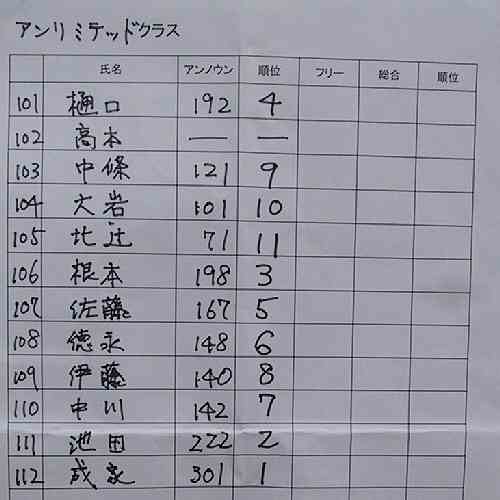 アンリミテッドクラス
氏名 アンノウン 順位 フリー 総合 順位
101 樋口 192 4
102 高本 — —
103 中條 121 9
104 大岩 101 10
105 北辻 71 11
106 根本 198 3
107 佐藤 167 5
108 徳永 148 6
109 伊藤 140 8
110 中川 142 7
111 池田 222 2
112 成家 301 1